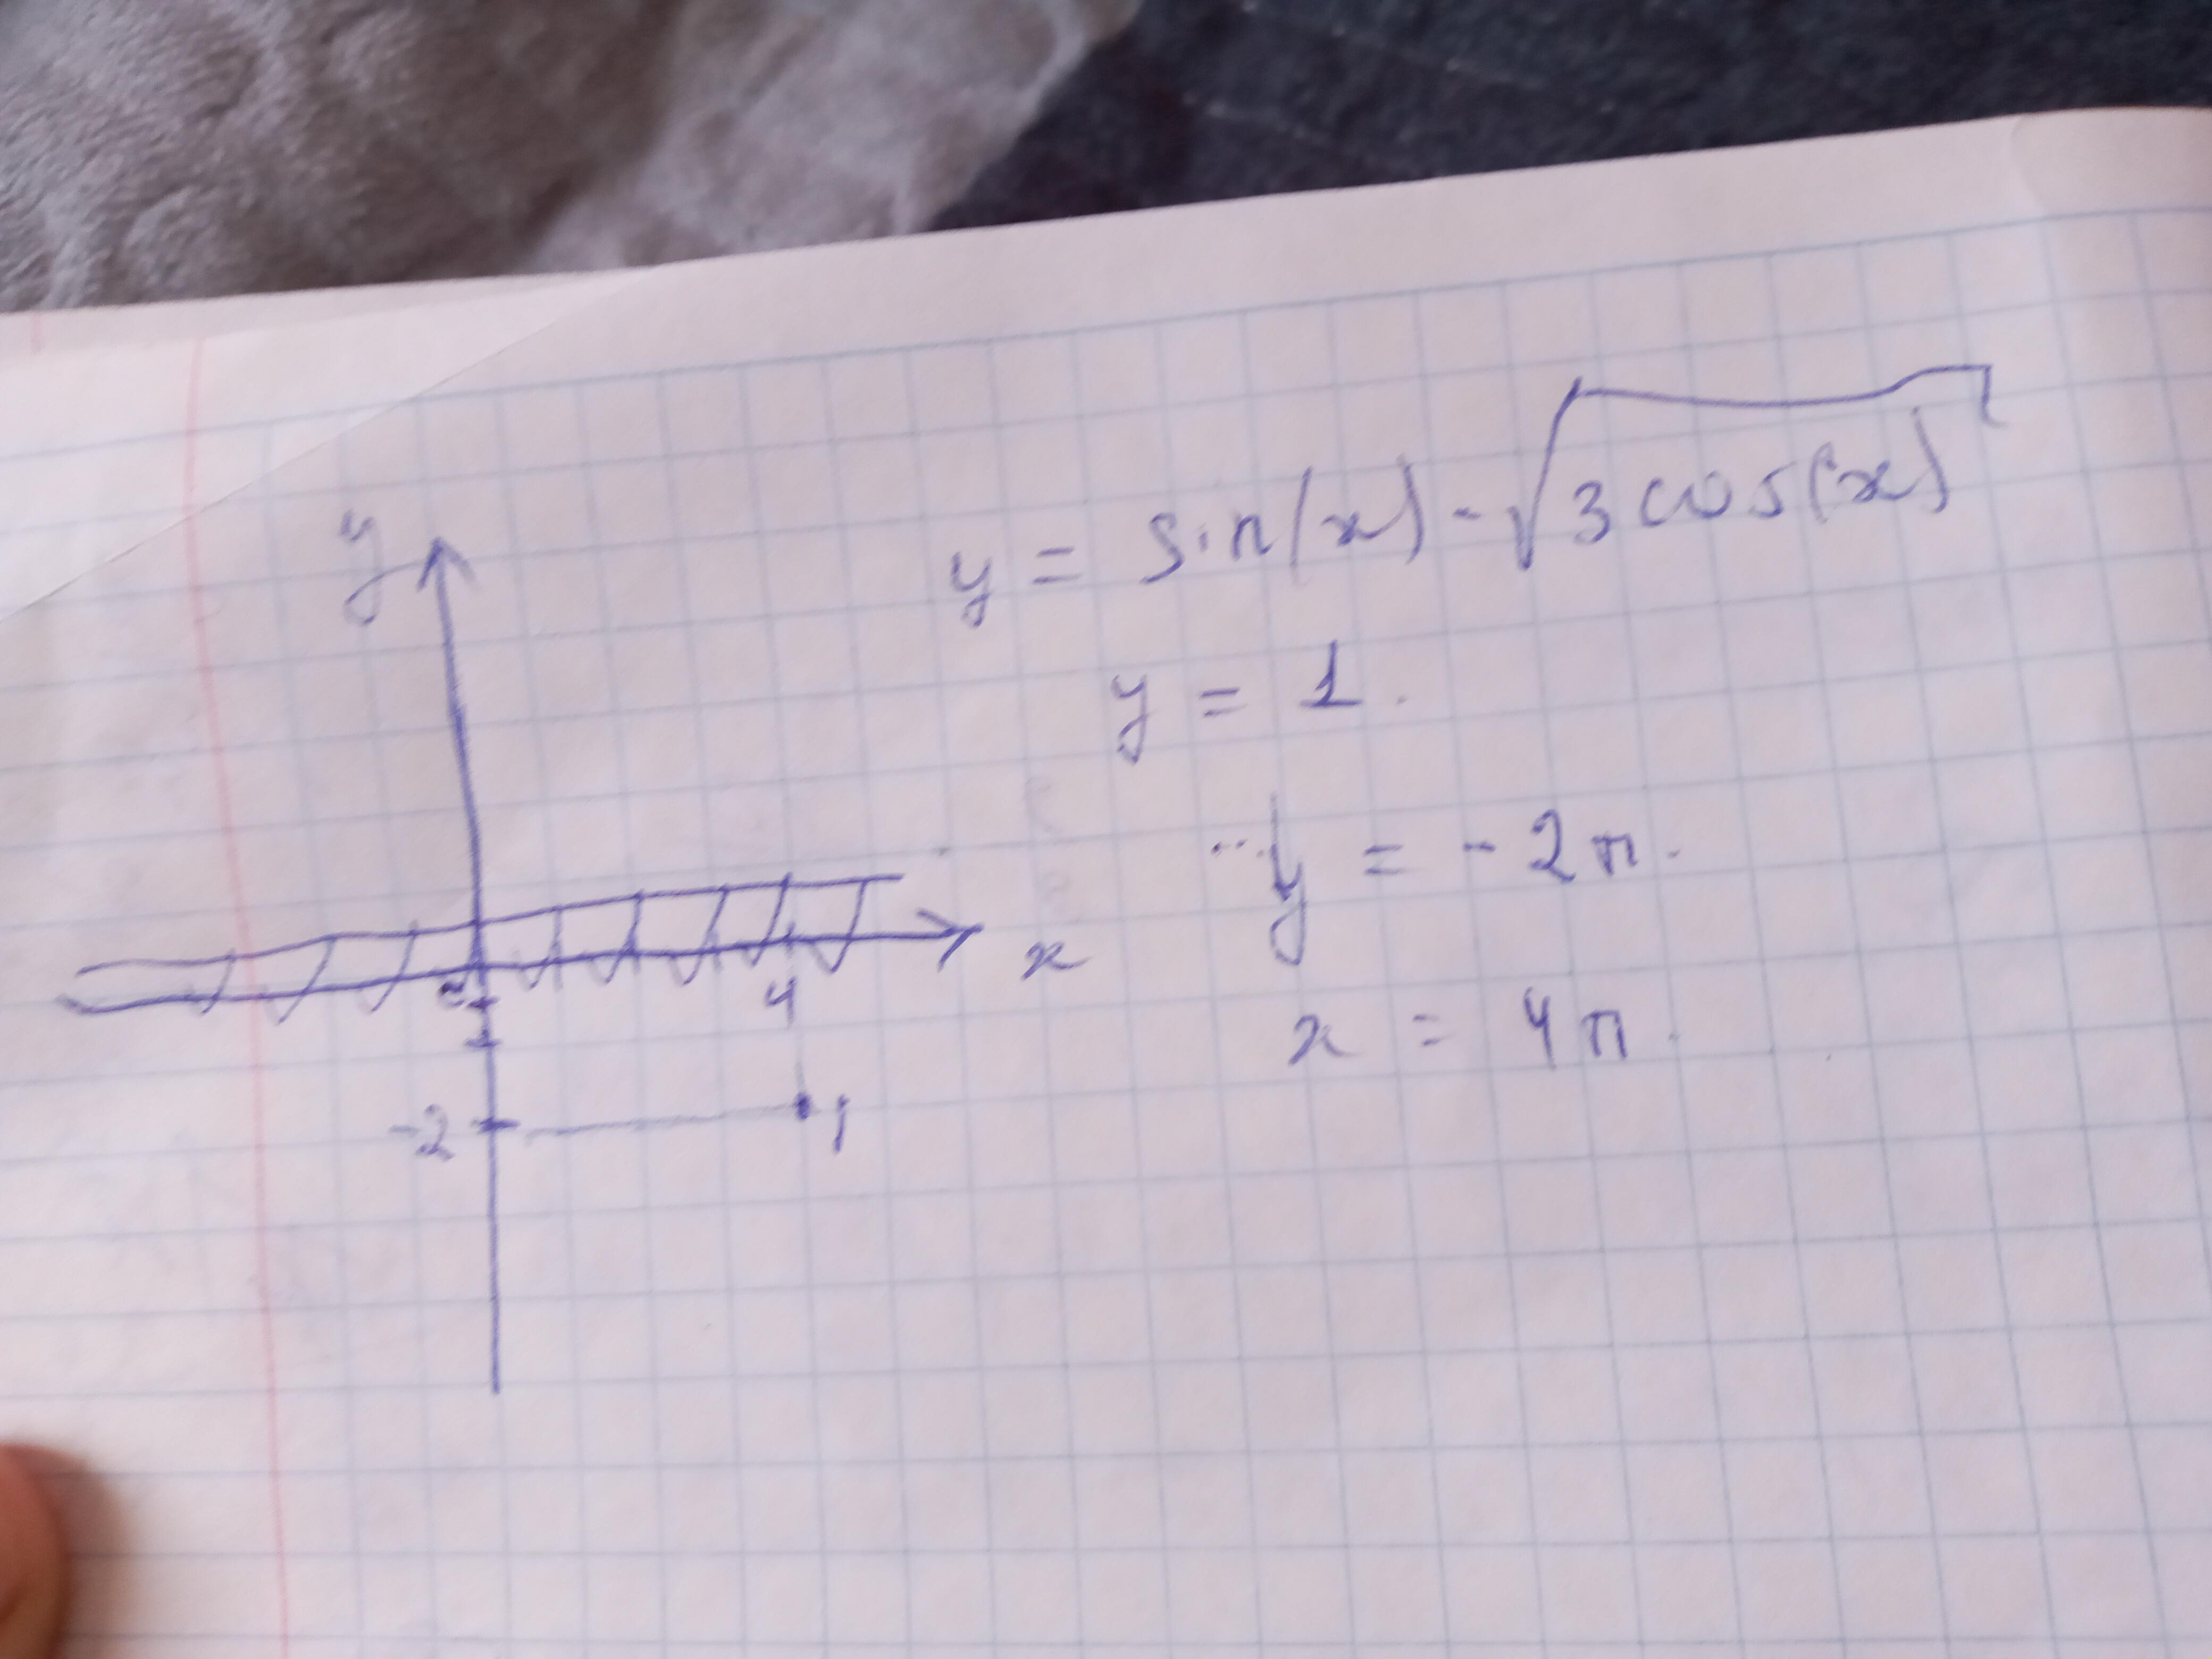 y = sin(x) - √3cos(x)
y = 1.
y = -2π.
x = 4π.
y
x
4
-2